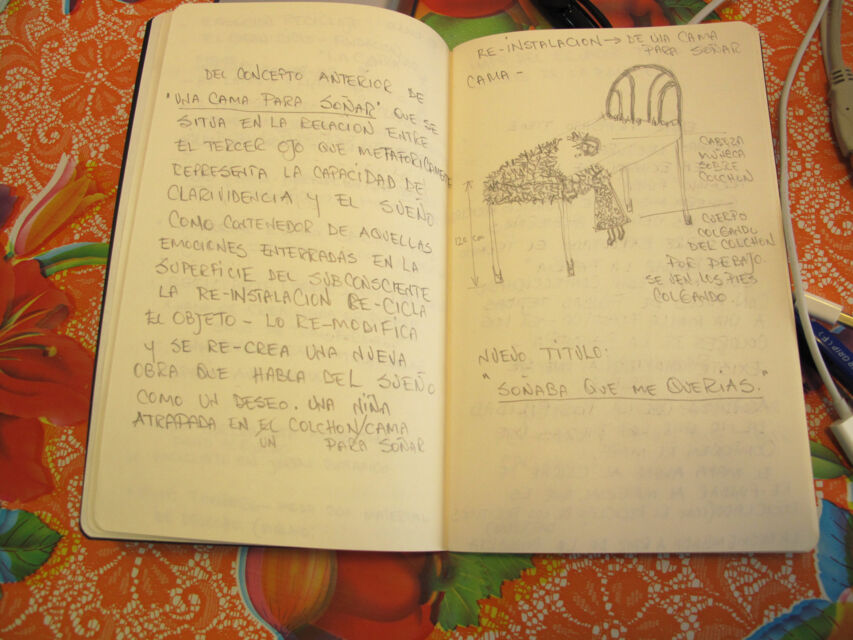 DEL CONCEPTO ANTERIOR DE
"UNA CAMA PARA SOÑAR" QUE SE
SITUA EN LA RELACION ENTRE
EL TERCER OJO QUE METAFORICAMENTE
REPRESENTA LA CAPACIDAD DE
CLARIVIDENCIA Y EL SUEÑO
COMO CONTENEDOR DE AQUELLAS
EMOCIONES ENTERRADAS EN LA
SUPERFICIE DEL SUBCONSCIENTE
LA RE-INSTALACION RE-CICLA
EL OBJETO - LO RE-MODIFICA
Y SE RE-CREA UNA NUEVA
OBRA QUE HABLA DEL SUEÑO
COMO UN DESEO. UNA NIÑA
ATRAPADA EN EL COLCHON/CAMA
UN PARA SOÑAR
RE-INSTALACION → DE UNA CAMA
PARA SOÑAR
CAMA -
CABEZA
MUÑECA
SOBRE
COLCHON
120 CM
CUERPO
COLGANDO
DEL COLCHON
POR DEBAJO.
SE VEN LOS PIES
COLGANDO.
NUEVO TITULO:
"SOÑABA QUE ME QUERIAS."